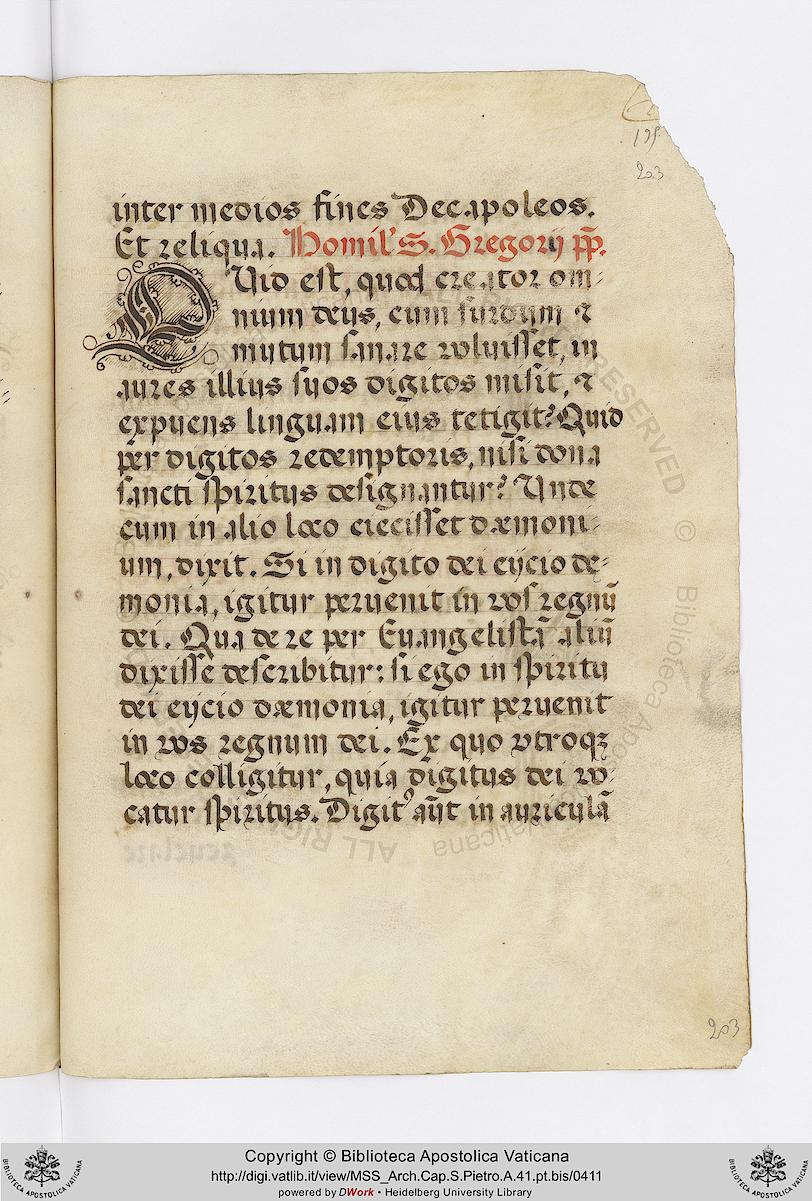 195
203
inter medios fines Decapoleos.
Et reliqua. Homil' S. Gregorij pp.
Quid est, quod creator om-
nium deus, cum surdum &
mutum sanare voluisset, in
aures illius suos digitos misit, &
expuens linguam eius tetigit? Quid
per digitos redemptoris, nisi dona
sancti spiritus designantur? Unde
cum in alio loco eiecisset dæmoni-
um, dixit. Si in digito dei eijcio dę-
monia, igitur peruenit in vos regnũ
dei. Qua de re per Euangelistã aliũ
dixisse describitur: si ego in spiritu
dei eijcio dæmonia, igitur peruenit
in vos regnum dei. Ex quo vtroqꝫ
loco colligitur, quia digitus dei vo-
catur spiritus. Digit' aũt in auriculã
203
Copyright © Biblioteca Apostolica Vaticana
http://digi.vatlib.it/view/MSS_Arch.Cap.S.Pietro.A.41.pt.bis/0411
powered by DWork • Heidelberg University Library
BIBLIOTECA APOSTOLICA VATICANA
BIBLIOTECA APOSTOLICA VATICANA